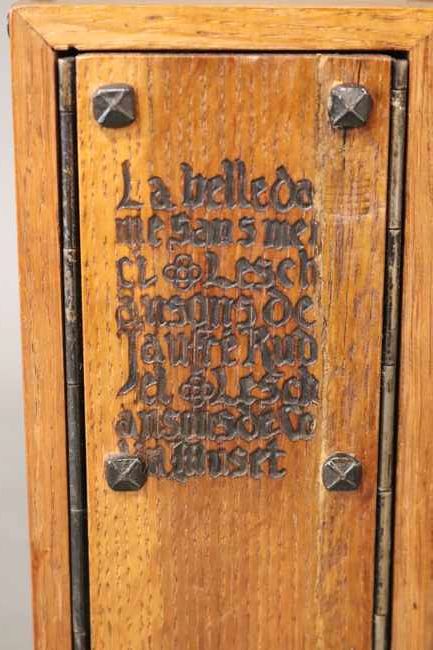 La belle da
me sans mer
ci Les ch
ansons de
Jaufre Rud
el Les ch
ansons de Co
lin Muset